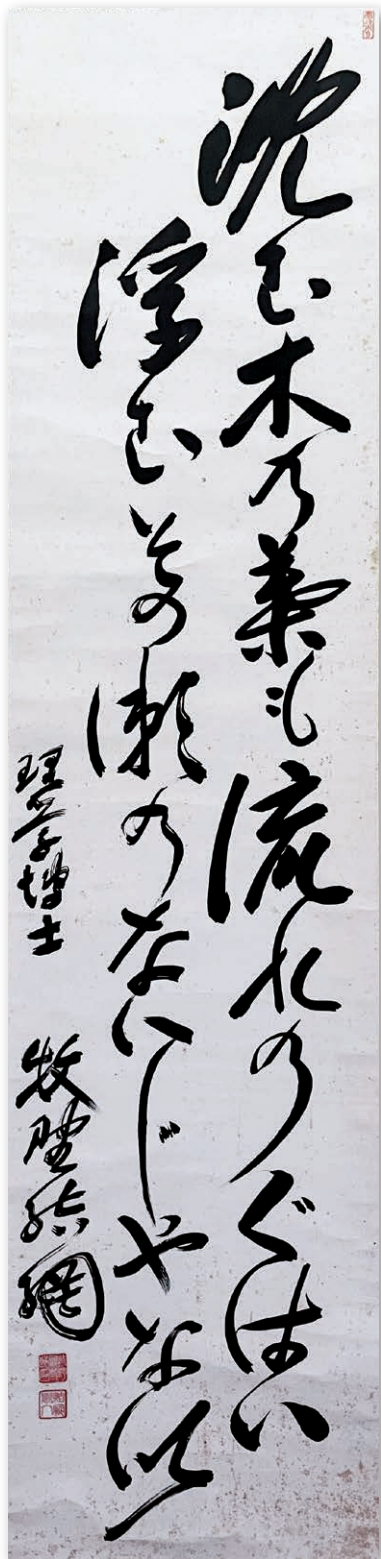 沈む木の葉も流れのぐはい
浮むその瀬のないじやない
理学博士 牧野結網